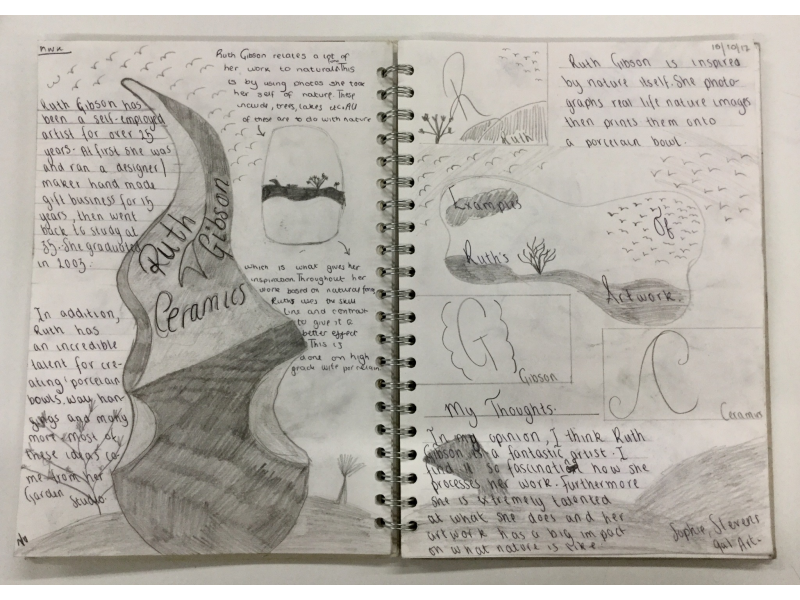 hwk
Ruth Gibson has
been a self-employed
artist for over 25
years. At first she was
and ran a designer/
maker hand made
gift business for 15
years, then went
back to study at
35. She graduated
in 2003.
In addition,
Ruth has
an incredible
talent for cre-
ating porcelain
bowls, way han-
gings and many
more most of
these ideas ca-
me from her
Garden Studio.
Ruth
Gibson
Ceramics
Ruth Gibson relates a lot of
her work to naturals. This
is by using photos she took
her self of nature. These
include, trees, lakes etc. All
of these are to do with nature
which is what gives her
inspiration. Throughout her
work based on natural form
Ruth uses the skill
line and contrast
to give it a
better effect
This is
done on high
grade wite porcelain.
10/10/17
R
Ruth
Ruth Gibson is inspired
by nature itself. She photo-
graphs real life nature images
then prints them onto
a porcelain bowl.
Exampus
Of
Ruth's
Artwork.
G
Gibson
Ceramin
My Thoughts.
In my opinion, I think Ruth
Gibson is a fantastic artist. I
find it so fascinating how she
processes her work. Furthermore
she is extremely talented
at what she does and her
artwork has a big impact
on what nature is like
Sophie Stevens
Art.